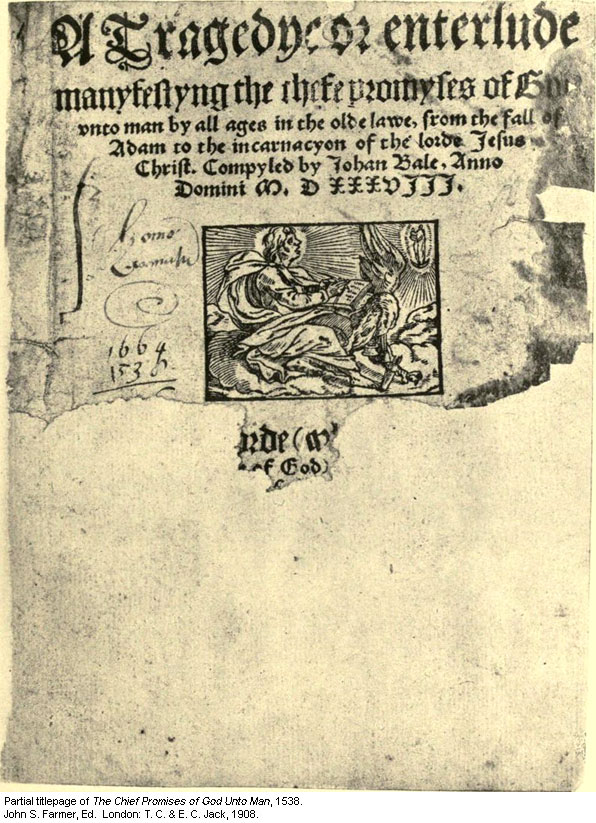 A Tragedye or enterlude
manyfestyng the chefe promyses of God
vnto man by all ages in the olde lawe, from the fall of
Adam to the incarnacyon of the lorde Jesus
Christ. Compyled by Johan Bale, Anno
Domini M. D XXXVIII.
1664
1538
of God
Partial titlepage of The Chief Promises of God Unto Man, 1538.
John S. Farmer, Ed. London: T. C. & E. C. Jack, 1908.